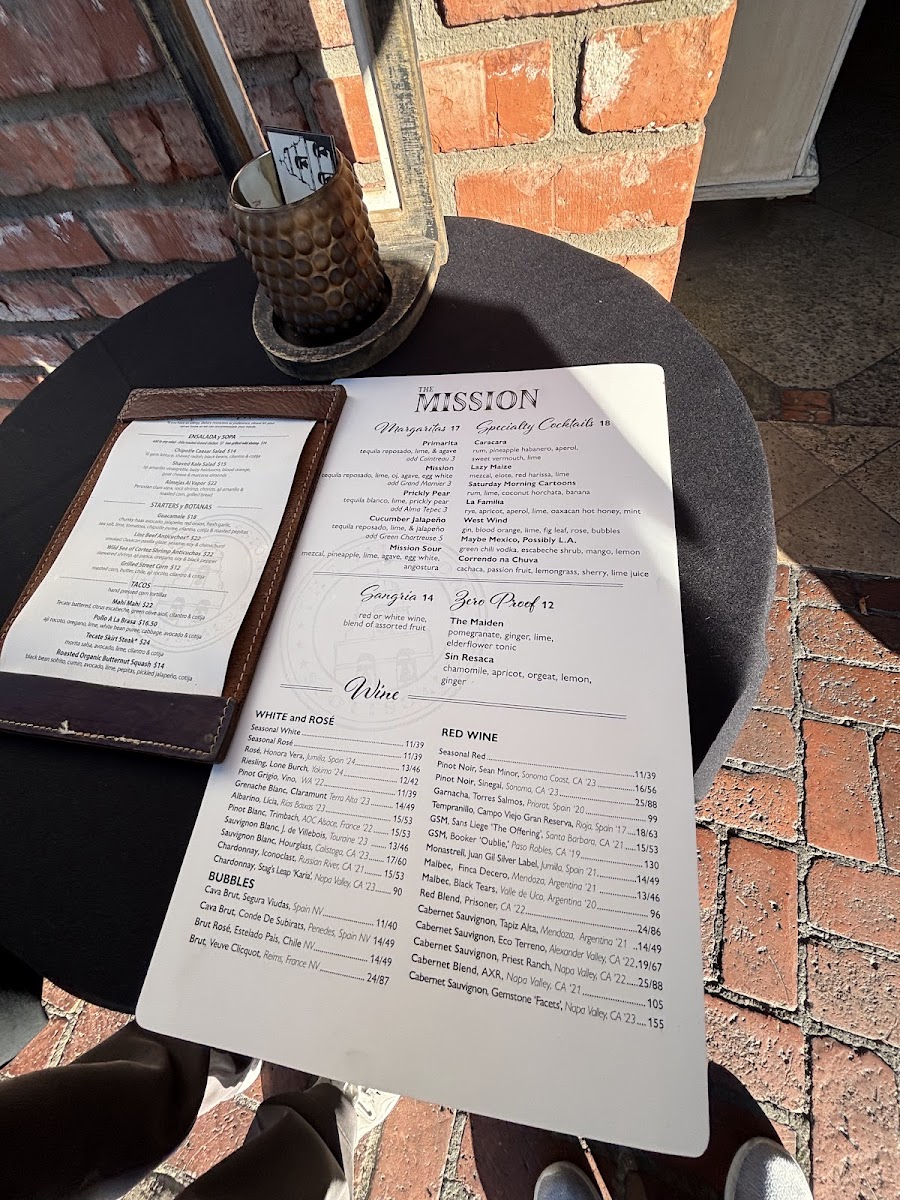 ENSALADA y SOPA
Chipotle Caesar Salad $14
Shaved Kale Salad $15
Almejas Al Vapor $22
roasted corn, grilled bread
STARTERS y BOTANAS
Guacamole $18
Wild Sea of Cortez Shrimp Anticuchos* $22
Grilled Street Corn $12
roasted corn, butter, chile, aji rocoto, cilantro & cotija
TACOS
hand pressed corn tortillas
Mahi Mahi $22
Tecate battered, citrus escabeche, green olive aioli, cilantro & cotija
Pollo A La Brasa $16.50
aji rocoto, oregano, lime, white bean puree, cabbage, avocado & cotija
Tecate Skirt Steak* $24
morita salsa, avocado, lime, cilantro & cotija
Roasted Organic Butternut Squash $14
black bean sofrito, cumin, avocado, lime, pepitas, pickled jalapeño, cotija
THE
MISSION
Margaritas 17
Primarita
tequila reposado, lime, & agave
add Cointreau 3
Mission
tequila reposado, lime, oj, agave, egg white
add Grand Marnier 3
Prickly Pear
tequila blanco, lime, prickly pear
add Alma Tepec 3
Cucumber Jalapeño
tequila reposado, lime, & jalapeño
add Green Chartreuse 5
Mission Sour
mezcal, pineapple, lime, agave, egg white,
angostura
Specialty Cocktails 18
Caracara
rum, pineapple habanero, aperol,
sweet vermouth, lime
Lazy Maize
mezcal, elote, red harissa, lime
Saturday Morning Cartoons
rum, lime, coconut horchata, banana
La Familia
rye, apricot, aperol, lime, oaxacan hot honey, mint
West Wind
gin, blood orange, lime, fig leaf, rose, bubbles
Maybe Mexico, Possibly L.A.
green chili vodka, escabeche shrub, mango, lemon
Correndo na Chuva
cachaca, passion fruit, lemongrass, sherry, lime juice
Sangria 14
red or white wine,
blend of assorted fruit
Zero Proof 12
The Maiden
pomegranate, ginger, lime,
elderflower tonic
Sin Resaca
chamomile, apricot, orgeat, lemon,
ginger
Wine
WHITE and ROSÉ
Seasonal White 11/39
Seasonal Rosé 11/39
Rosé, Honora Vera, Jumilla, Spain '24 13/46
Riesling, Lone Burch, Yakima '24 12/42
Pinot Grigio, Vino, WA '22 11/39
Grenache Blanc, Claramunt Terra Alta '23 14/49
Albarino, Licia, Rias Baixas '23 15/53
Pinot Blanc, Trimbach, AOC Alsace, France '22 15/53
Sauvignon Blanc, J. de Villebois, Touraine '23 13/46
Sauvignon Blanc, Hourglass, Calistoga, CA '23 17/60
Chardonnay, Iconoclast, Russian River, CA '21 15/53
Chardonnay, Stag's Leap 'Karia', Napa Valley, CA '23 90
BUBBLES
Cava Brut, Segura Viudas, Spain NV 11/40
Cava Brut, Conde De Subirats, Penedes, Spain NV 14/49
Brut Rosé, Estelado Pais, Chile NV 14/49
Brut, Veuve Clicquot, Reims, France NV 24/87
RED WINE
Seasonal Red 11/39
Pinot Noir, Sean Minor, Sonoma Coast, CA '23 16/56
Pinot Noir, Sinegal, Sonoma, CA '23 25/88
Garnacha, Torres Salmos, Priorat, Spain '20 99
Tempranillo, Campo Viejo Gran Reserva, Rioja, Spain '17 18/63
GSM, Sans Liege 'The Offering', Santa Barbara, CA '21 15/53
GSM, Booker 'Oublie,' Paso Robles, CA '19 130
Monastrell, Juan Gil Silver Label, Jumilla, Spain '21 14/49
Malbec, Finca Decero, Mendoza, Argentina '21 13/46
Malbec, Black Tears, Valle de Uco, Argentina '20 96
Red Blend, Prisoner, CA '22 24/86
Cabernet Sauvignon, Tapiz Alta, Mendoza, Argentina '21 14/49
Cabernet Sauvignon, Eco Terreno, Alexander Valley, CA '22 19/67
Cabernet Sauvignon, Priest Ranch, Napa Valley, CA '22 25/88
Cabernet Blend, AXR, Napa Valley, CA '21 105
Cabernet Sauvignon, Gemstone 'Facets', Napa Valley, CA '23 155